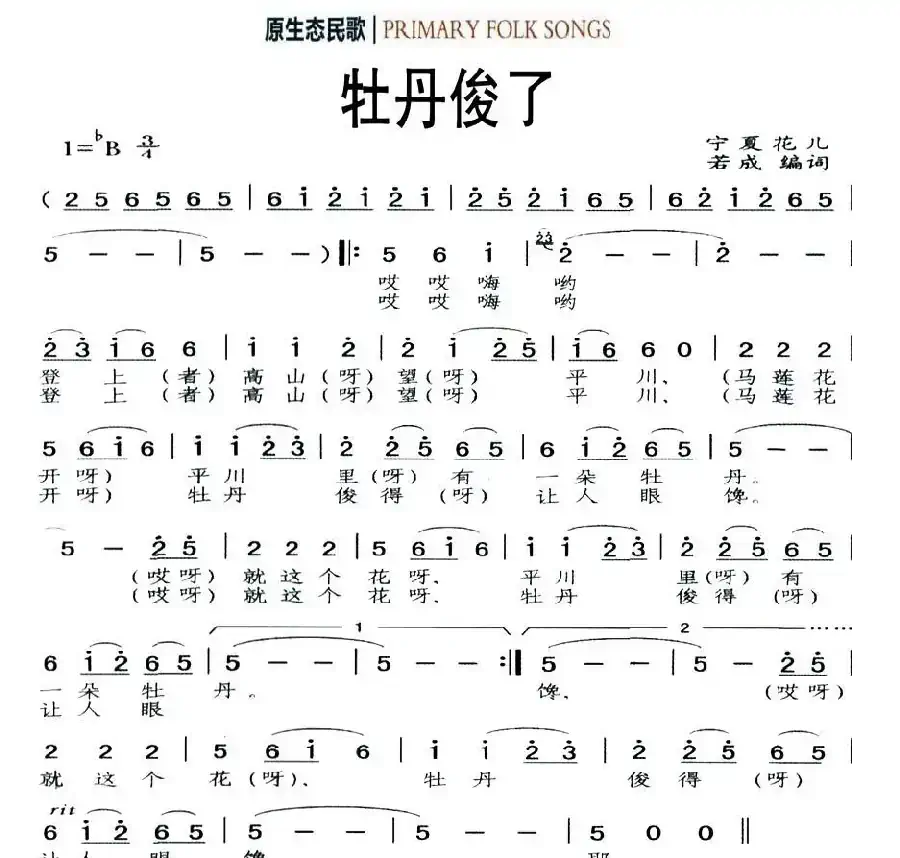 原生态民歌 | PRIMARY FOLK SONGS
牡丹俊了
1=♭B 3/4
宁夏花儿
若成 编词
( 2 5 6 5 6 5 | 6 i 2̇ i 2̇ i | 2̇ 5̇ 2̇ i 6 5 | 6 2̇ i 2̇ 6 5 |
5 - - | 5 - - ) ‖: 5 6 i | 2̇3̇ 2̇ - - | 2̇ - - |
哎 哎 嗨 哟
哎 哎 嗨 哟
2̇ 3̇ i 6 6 | i i 2̇ | 2̇ i 2̇ 5̇ | i 6 6 0 | 2 2 2
登 上 (者) 高 山 (呀) 望 (呀) 平 川、 (马 莲 花
登 上 (者) 高 山 (呀) 望 (呀) 平 川、 (马 莲 花
5 6 i 6 | i i 2̇ 3̇ | 2̇ 2̇ 5̇ 6 5 | 6 i 2̇ 6 5 | 5 - -
开 呀) 平 川 里 (呀) 有 一 朵 牡 丹。
开 呀) 牡 丹 俊 得 (呀) 让 人 眼 馋。
5 - 2̇ 5̇ | 2 2 2 | 5 6 i 6 | i i 2̇ 3̇ | 2̇ 2̇ 5̇ 6 5 |
(哎 呀) 就 这 个 花 呀、 平 川 里 (呀) 有
(哎 呀) 就 这 个 花 呀、 牡 丹 俊 得 (呀)
1 2 …… …
6 i 2̇ 6 5 | 5 - - | 5 - - :‖ 5 - - | 5 - 2̇ 5̇ |
一 朵 牡 丹。 馋、 (哎 呀)
让 人 眼
2 2 2 | 5 6 i 6 | i i 2̇ 3̇ | 2̇ 2̇ 5̇ 6 5 |
就 这 个 花 (呀)、 牡 丹 俊 得 (呀)
rit
6 i 2̇ 6 5 | 5 - - | 5 - - | 5 0 0 ‖
让 人 眼 馋